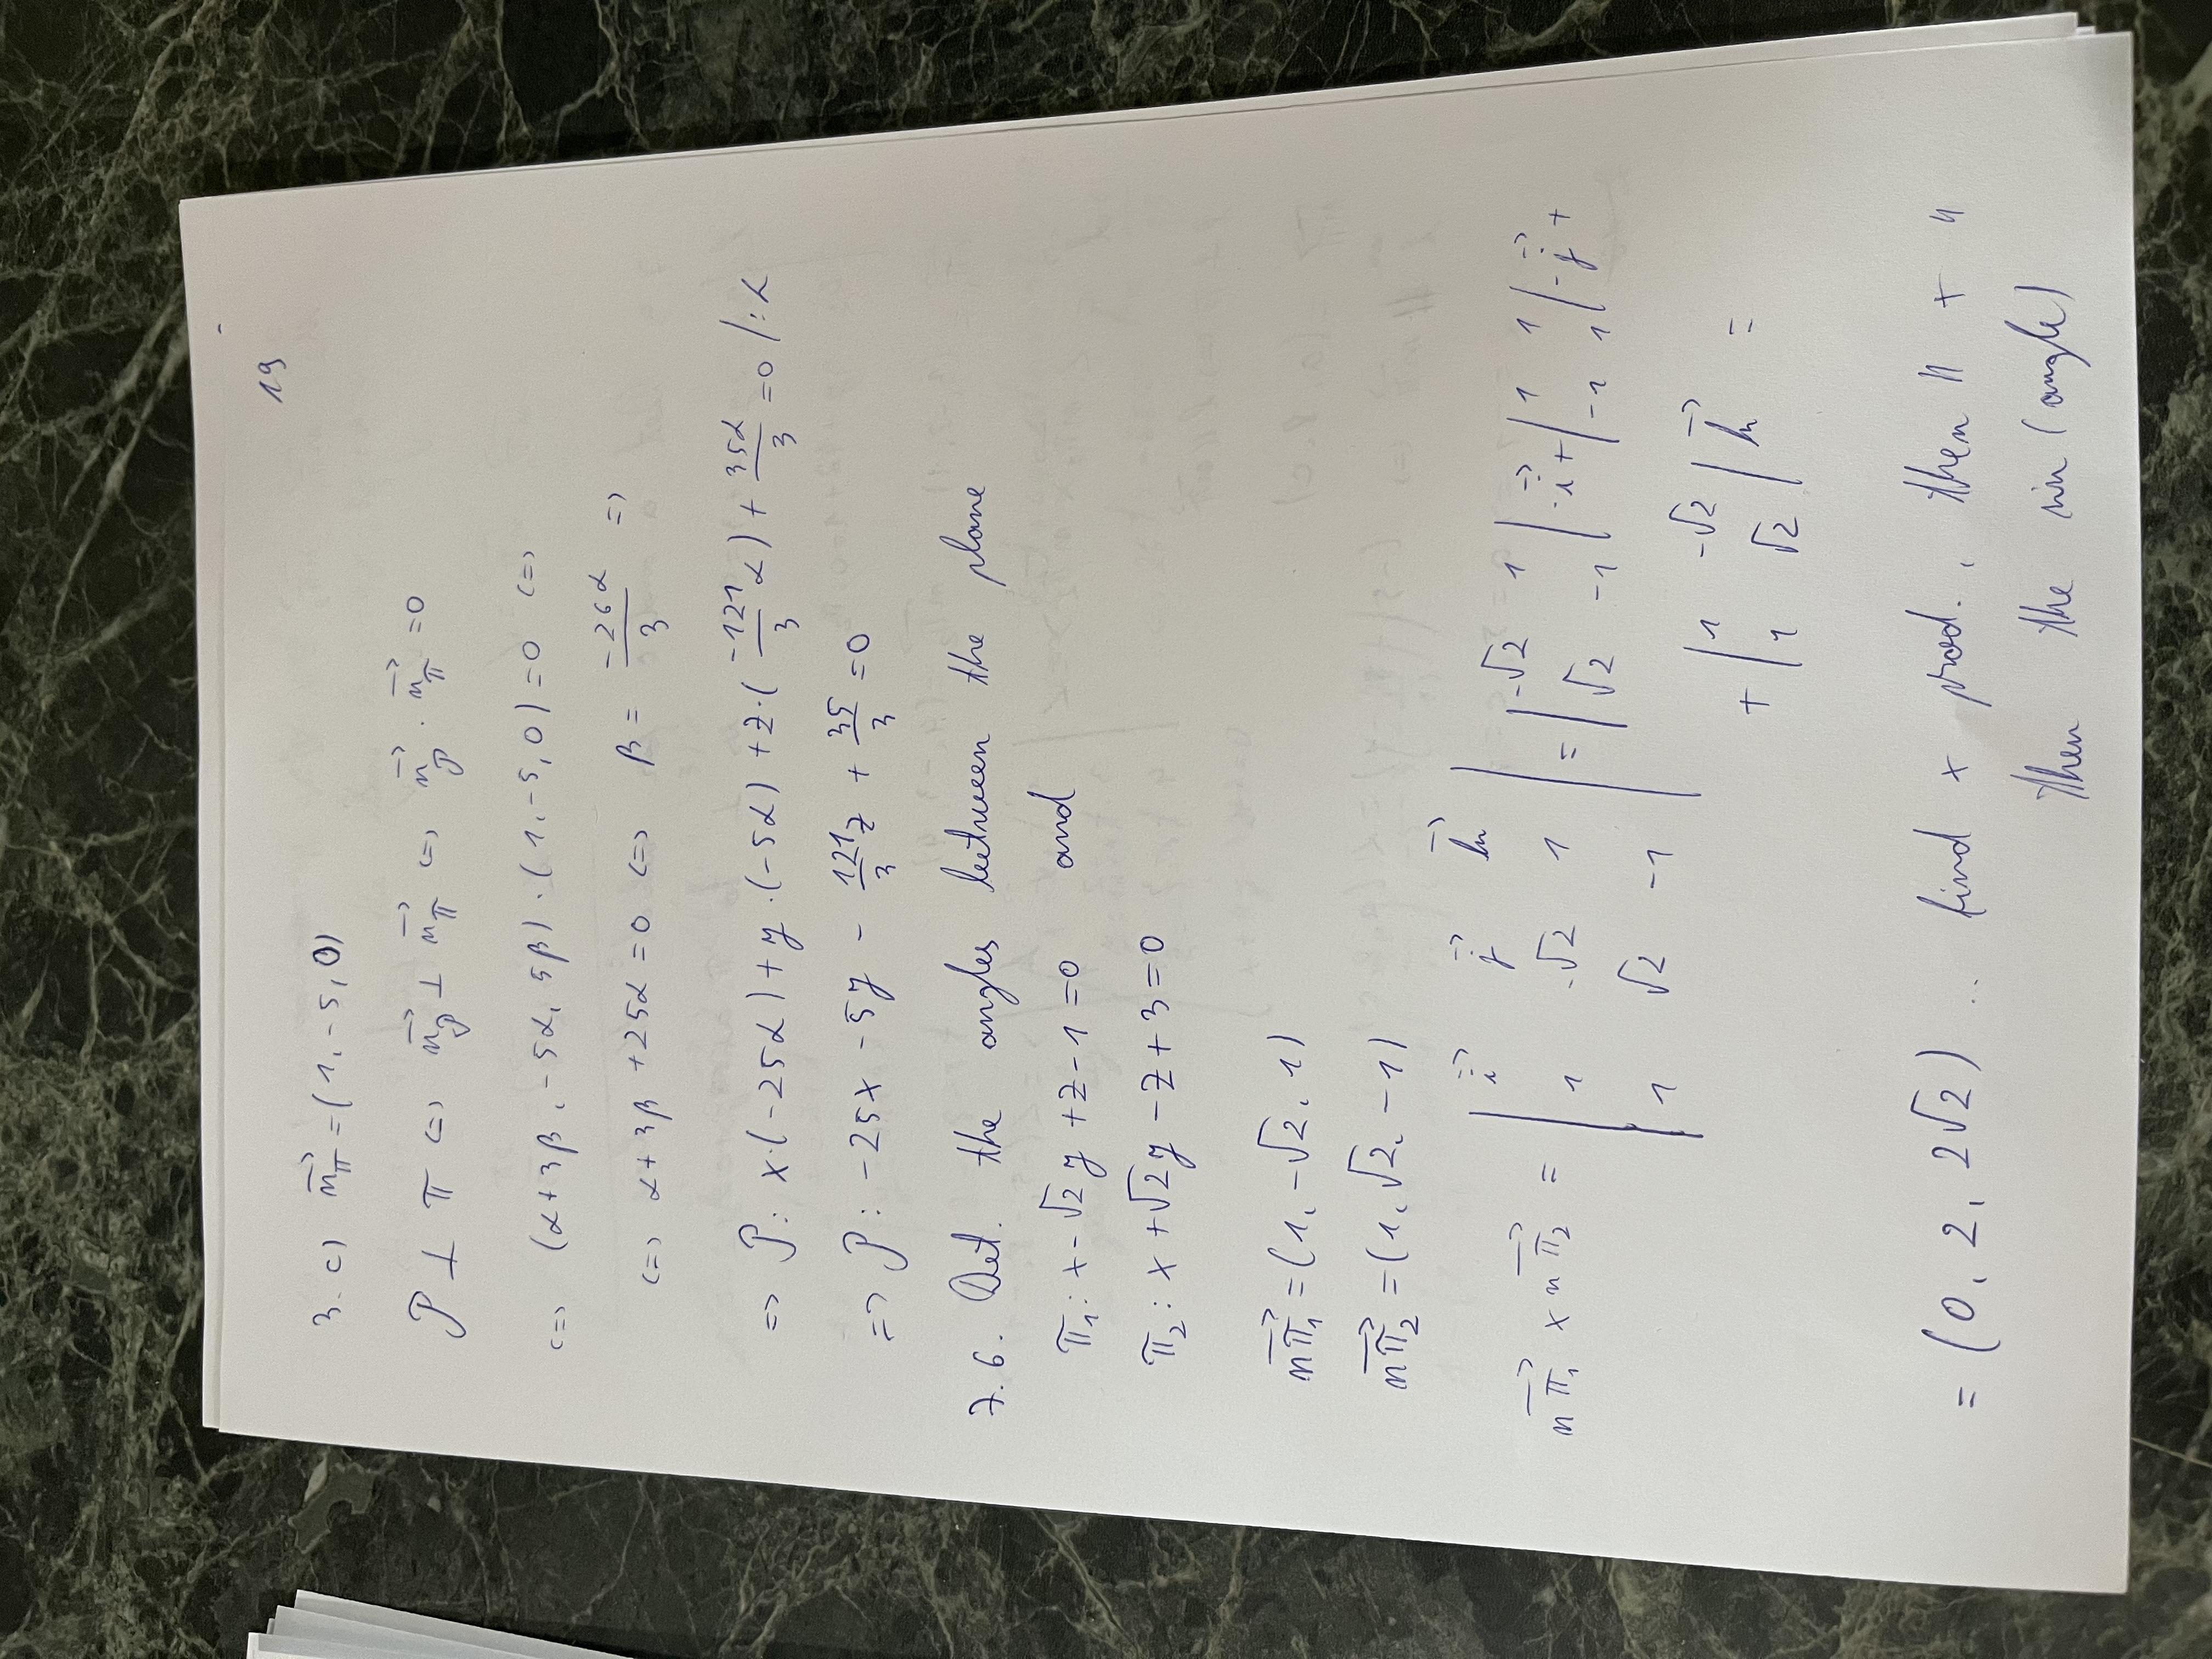 19
3. c) n⃗_π = (1, -5, 0)
P ⊥ π <=> n⃗_P ⊥ n⃗_π <=> n⃗_P · n⃗_π = 0
<=> (α+3β, -5α, 5β) · (1, -5, 0) = 0 <=>
<=> α + 3β + 25α = 0 <=> β = -26α/3 =>
=> P: x·(-25α) + y·(-5α) + z·(-121/3 α) + 35α/3 = 0 /:α
=> P: -25x - 5y - 121/3 z + 35/3 = 0
7.6. Det. the angles between the plane
π₁: x - √2 y + z - 1 = 0 and
π₂: x + √2 y - z + 3 = 0
n⃗π₁ = (1, -√2, 1)
n⃗π₂ = (1, √2, -1)
n⃗π₁ × n⃗π₂ = | i⃗ j⃗ k⃗ ; 1 -√2 1 ; 1 √2 -1 | = | -√2 1 ; √2 -1 | · i⃗ + | 1 1 ; -1 1 | · j⃗ +
+ | 1 -√2 ; 1 √2 | k⃗ =
= (0, 2, 2√2) .. find × prod., then || × ||
then the sin (angle)